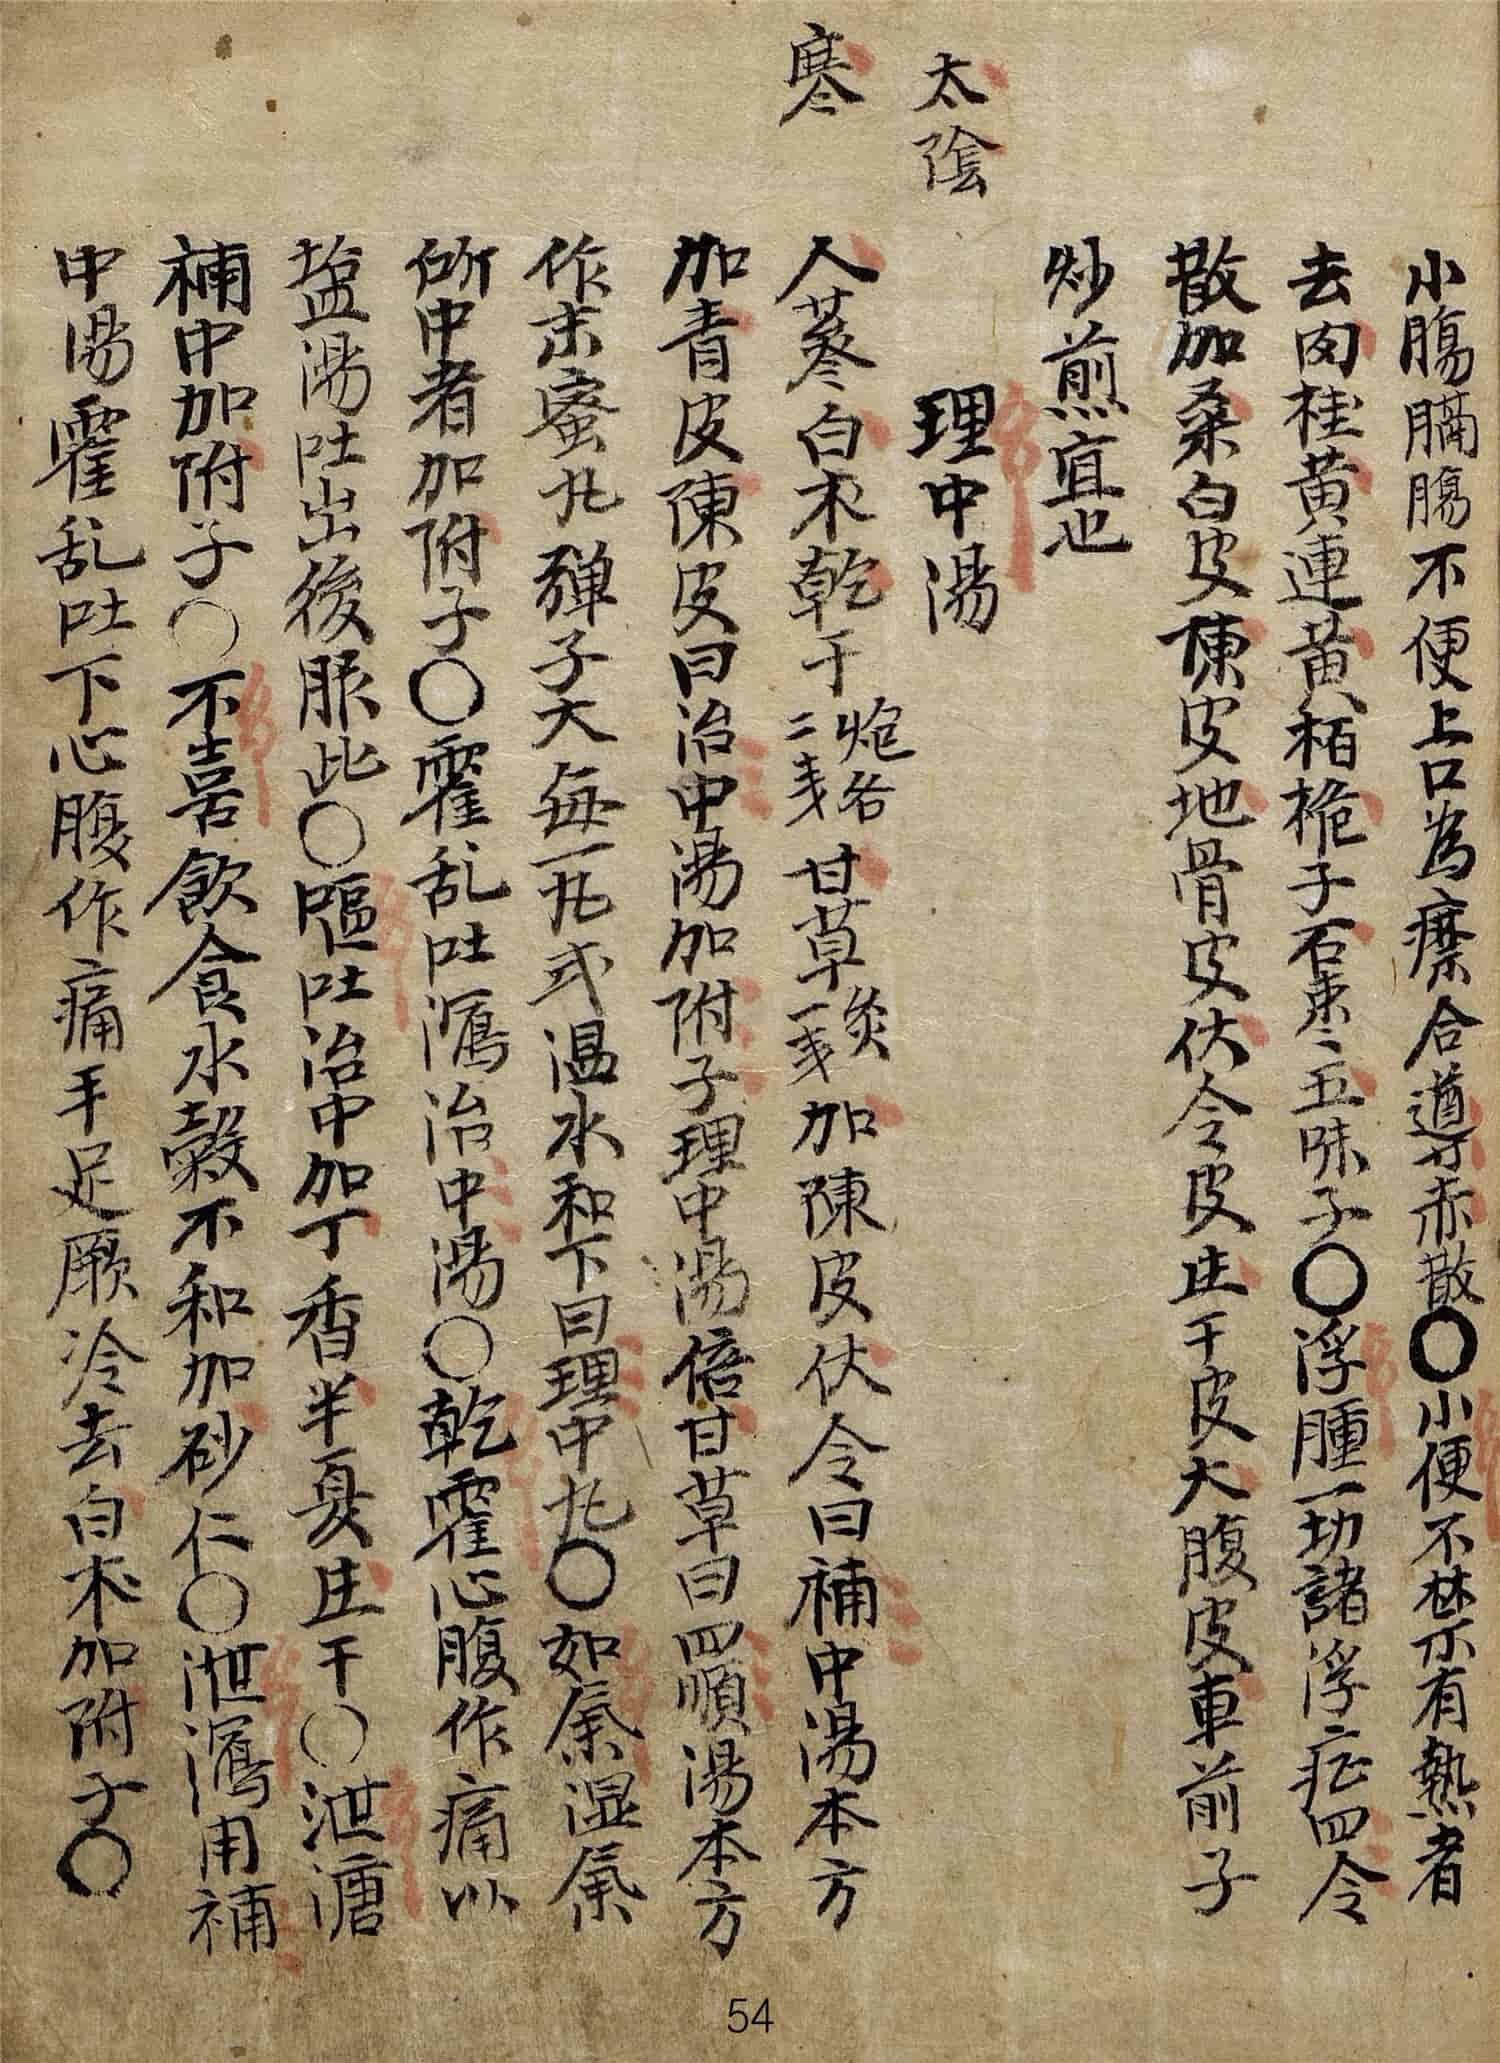 小腸膈腸不便上口為糜合導赤散〇小便不禁有熱者
去肉桂黄連黄栢梔子石枣五味子〇浮腫一切諸浮症四令
散加桑白皮陳皮地骨皮伏令皮庄干皮大腹皮車前子
炒煎直也
太陰
理中湯
寒
人蔘白朮乾干炮各二戋甘草炙一戋加陳皮伏令曰補中湯本方
加青皮陳皮曰治中湯加附子理中湯倍甘草曰四順湯本方
作末蜜丸弾子大每一丸式温水和下曰理中丸〇如氣湿氣
所中者加附子〇霍乱吐瀉治中湯〇乾霍心腹作痛以
塩湯吐出後服此〇嘔吐治中加丁香半夏庄干〇泄溏
補中加附子〇不喜飲食水穀不和加砂仁〇泄瀉用補
中湯霍乱吐下心腹作痛手足厥冷去白朮加附子〇
54